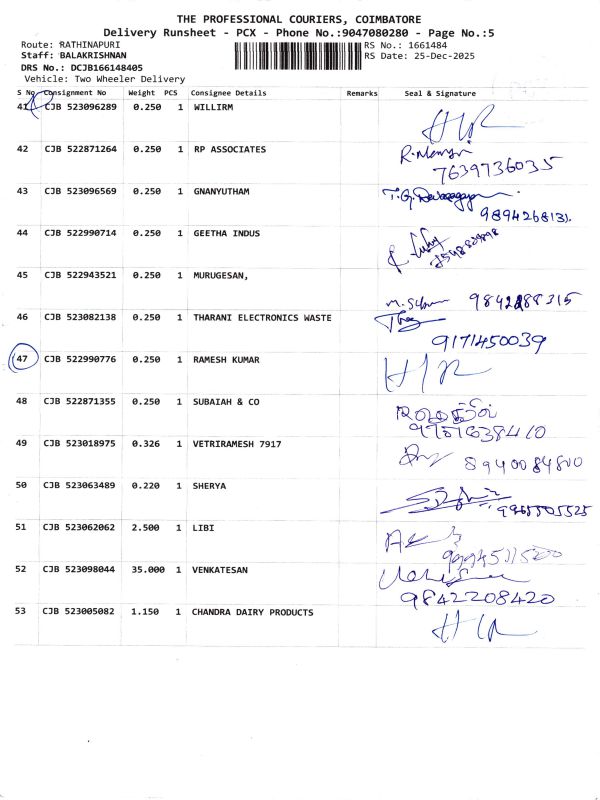 THE PROFESSIONAL COURIERS, COIMBATORE
Delivery Runsheet - PCX - Phone No.:9047080280 - Page No.:5
Route: RATHINAPURI RS No.: 1661484
Staff: BALAKRISHNAN RS Date: 25-Dec-2025
DRS No.: DCJB166148405
Vehicle: Two Wheeler Delivery
S No Consignment No Weight PCS Consignee Details Remarks Seal & Signature
41 CJB 523096289 0.250 1 WILLIRM
42 CJB 522871264 0.250 1 RP ASSOCIATES
7639736035
43 CJB 523096569 0.250 1 GNANYUTHAM
9894268131.
44 CJB 522990714 0.250 1 GEETHA INDUS
45 CJB 522943521 0.250 1 MURUGESAN,
46 CJB 523082138 0.250 1 THARANI ELECTRONICS WASTE
9171450039
47 CJB 522990776 0.250 1 RAMESH KUMAR
48 CJB 522871355 0.250 1 SUBAIAH & CO
49 CJB 523018975 0.326 1 VETRIRAMESH 7917
8940084800
50 CJB 523063489 0.220 1 SHERYA
51 CJB 523062062 2.500 1 LIBI
52 CJB 523098044 35.000 1 VENKATESAN
9842208420
53 CJB 523005082 1.150 1 CHANDRA DAIRY PRODUCTS